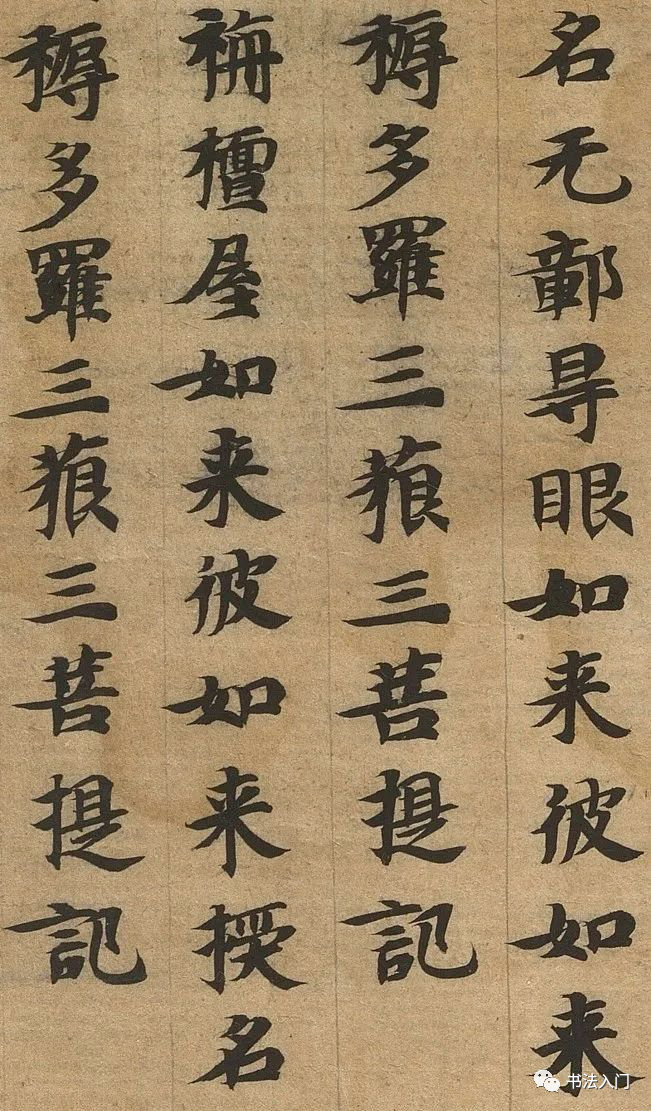 名无鄣㝵眼如来彼如来
耨多羅三藐三菩提記
栴檀屋如来彼如来授名
耨多羅三藐三菩提記
书法入门